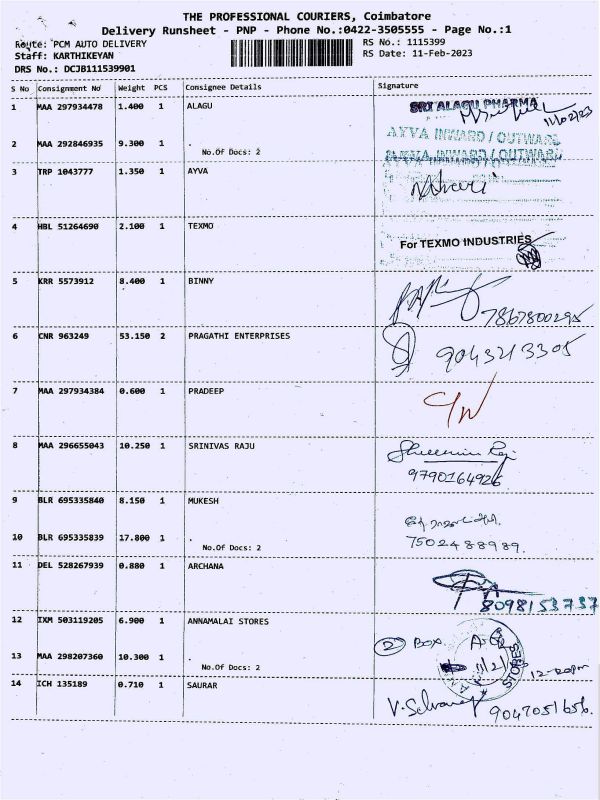 THE PROFESSIONAL COURIERS, Coimbatore
Delivery Runsheet - PNP - Phone No.:0422-3505555 - Page No.:1
Route: PCM AUTO DELIVERY
RS No.: 1115399
Staff: KARTHIKEYAN
RS Date: 11-Feb-2023
DRS No.: DCJB111539901
S No Consignment No Weight PCS Consignee Details Signature
1 MAA 297934478 1.400 1 ALAGU
SRI ALAGU PHARMA
11/02/23
AYVA INWARD / OUTWARD
2 MAA 292846935 9.300 1 .
No.Of Docs: 2
AYVA INWARD / OUTWARD
3 TRP 1043777 1.350 1 AYVA
4 HBL 51264690 2.100 1 TEXMO
For TEXMO INDUSTRIES
5 KRR 5573912 8.400 1 BINNY
7867800295
6 CNR 963249 53.150 2 PRAGATHI ENTERPRISES
9043213305
7 MAA 297934384 0.600 1 PRADEEP
8 MAA 296655043 10.250 1 SRINIVAS RAJU
9790164926
9 BLR 695335840 8.150 1 MUKESH
10 BLR 695335839 17.800 1 .
7502488989.
No.Of Docs: 2
11 DEL 528267939 0.880 1 ARCHANA
8098153737
12 IXM 503119205 6.900 1 ANNAMALAI STORES
2 BOX
13 MAA 298207360 10.300 1 .
No.Of Docs: 2
11/2/
STORES
12-20pm
14 ICH 135189 0.710 1 SAURAR
V. Selvaraj
9047051656.